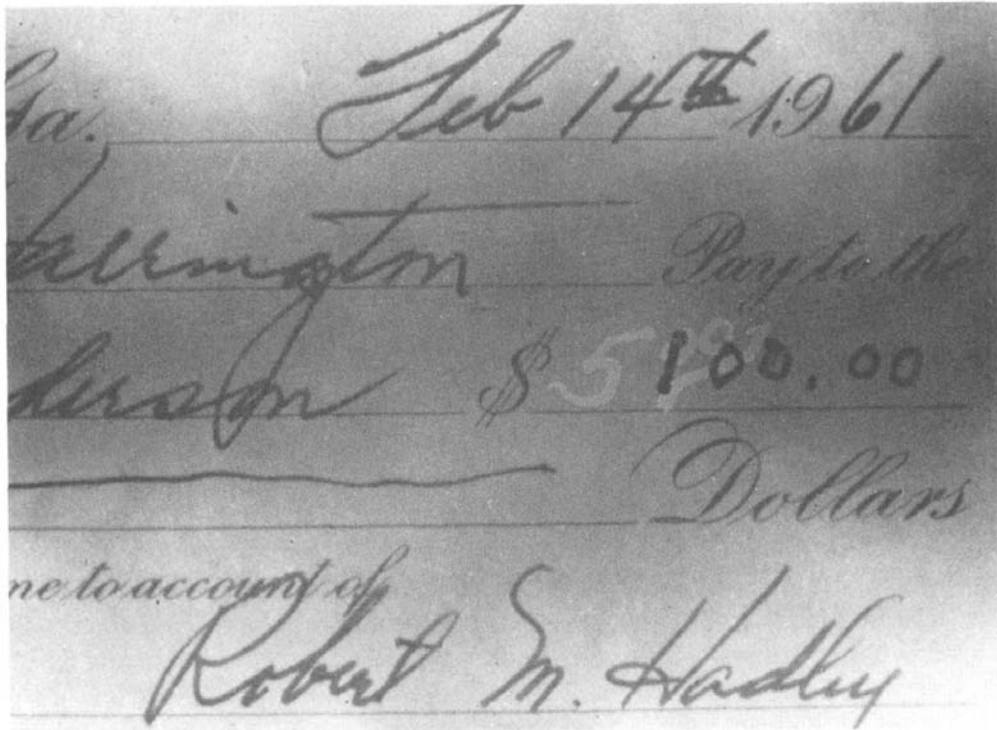 Ga. Feb 14th 1961
Harrington Pay to the
derson $ 5 100.00
Dollars
me to account of
Robert M. Hadley